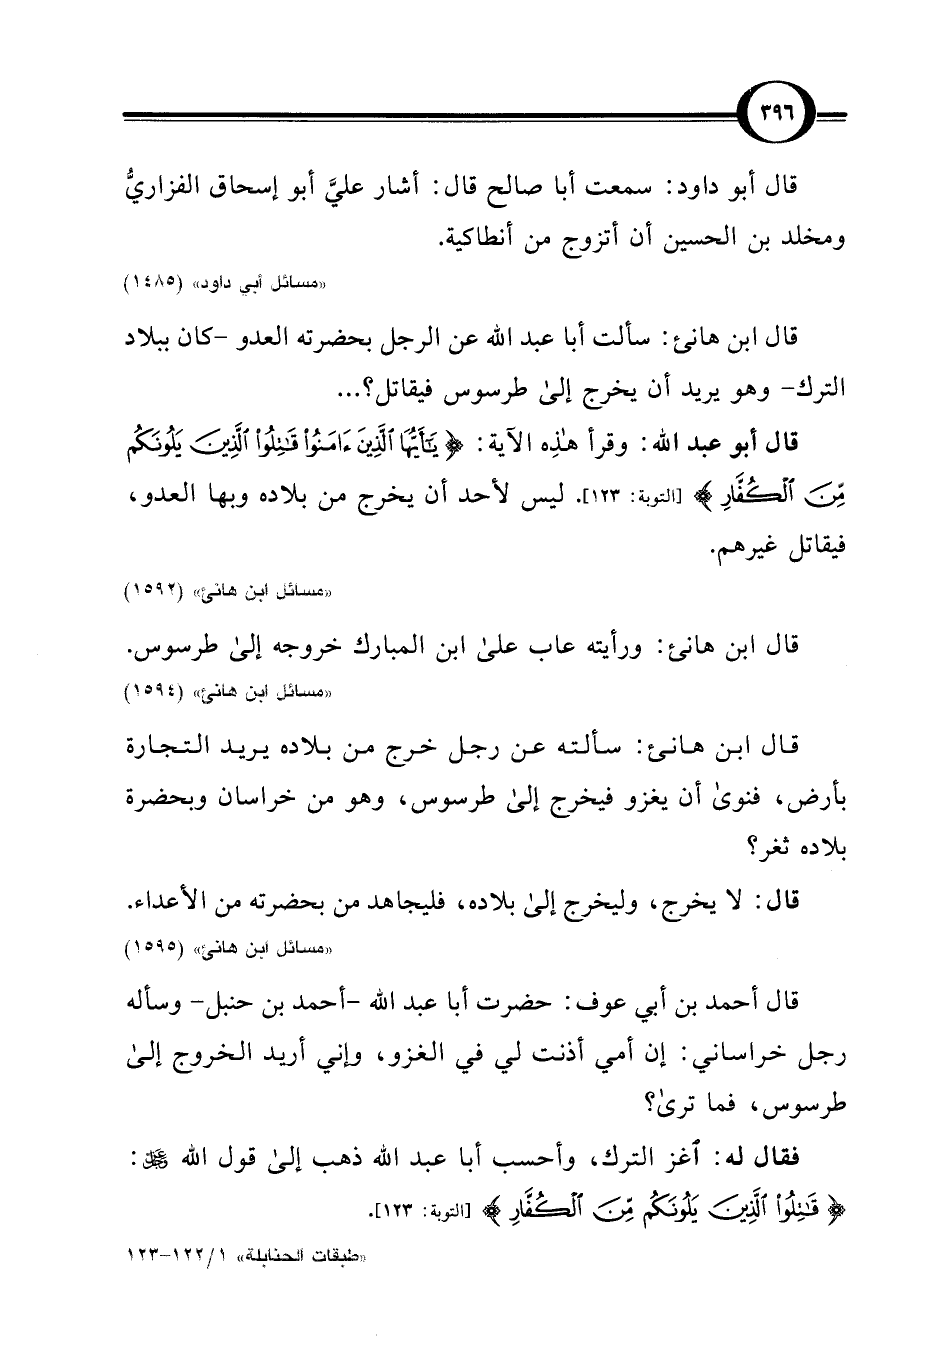 ٣٩٦
قال أبو داود: سمعت أبا صالح قال: أشار عليَّ أبو إسحاق الفزاريُّ
ومخلد بن الحسين أن أتزوج من أنطاكية.
«مسائل أبي داود» (١٤٨٥)
قال ابن هانئ: سألت أبا عبد الله عن الرجل بحضرته العدو -كان ببلاد
الترك- وهو يريد أن يخرج إلىٰ طرسوس فيقاتل؟...
قال أبو عبد الله: وقرأ هٰذِه الآية: ﴿ يَٰٓأَيُّهَا ٱلَّذِينَ ءَامَنُوا۟ قَٰتِلُوا۟ ٱلَّذِينَ يَلُونَكُم
مِّنَ ٱلْكُفَّارِ ﴾ [التوبة: ١٢٣]. ليس لأحد أن يخرج من بلاده وبها العدو،
فيقاتل غيرهم.
«مسائل ابن هانئ» (١٥٩٢)
قال ابن هانئ: ورأيته عاب علىٰ ابن المبارك خروجه إلىٰ طرسوس.
«مسائل ابن هانئ» (١٥٩٤)
قال ابن هانئ: سألته عن رجل خرج من بلاده يريد التجارة
بأرض، فنوىٰ أن يغزو فيخرج إلىٰ طرسوس، وهو من خراسان وبحضرة
بلاده ثغر؟
قال: لا يخرج، وليخرج إلىٰ بلاده، فليجاهد من بحضرته من الأعداء.
«مسائل ابن هانئ» (١٥٩٥)
قال أحمد بن أبي عوف: حضرت أبا عبد الله -أحمد بن حنبل- وسأله
رجل خراساني: إن أمي أذنت لي في الغزو، وإني أريد الخروج إلىٰ
طرسوس، فما ترىٰ؟
فقال له: ٱغز الترك، وأحسب أبا عبد الله ذهب إلىٰ قول الله ﷺ:
﴿ قَٰتِلُوا۟ ٱلَّذِينَ يَلُونَكُم مِّنَ ٱلْكُفَّارِ ﴾ [التوبة: ١٢٣].
«طبقات الحنابلة» ١/ ١٢٢-١٢٣